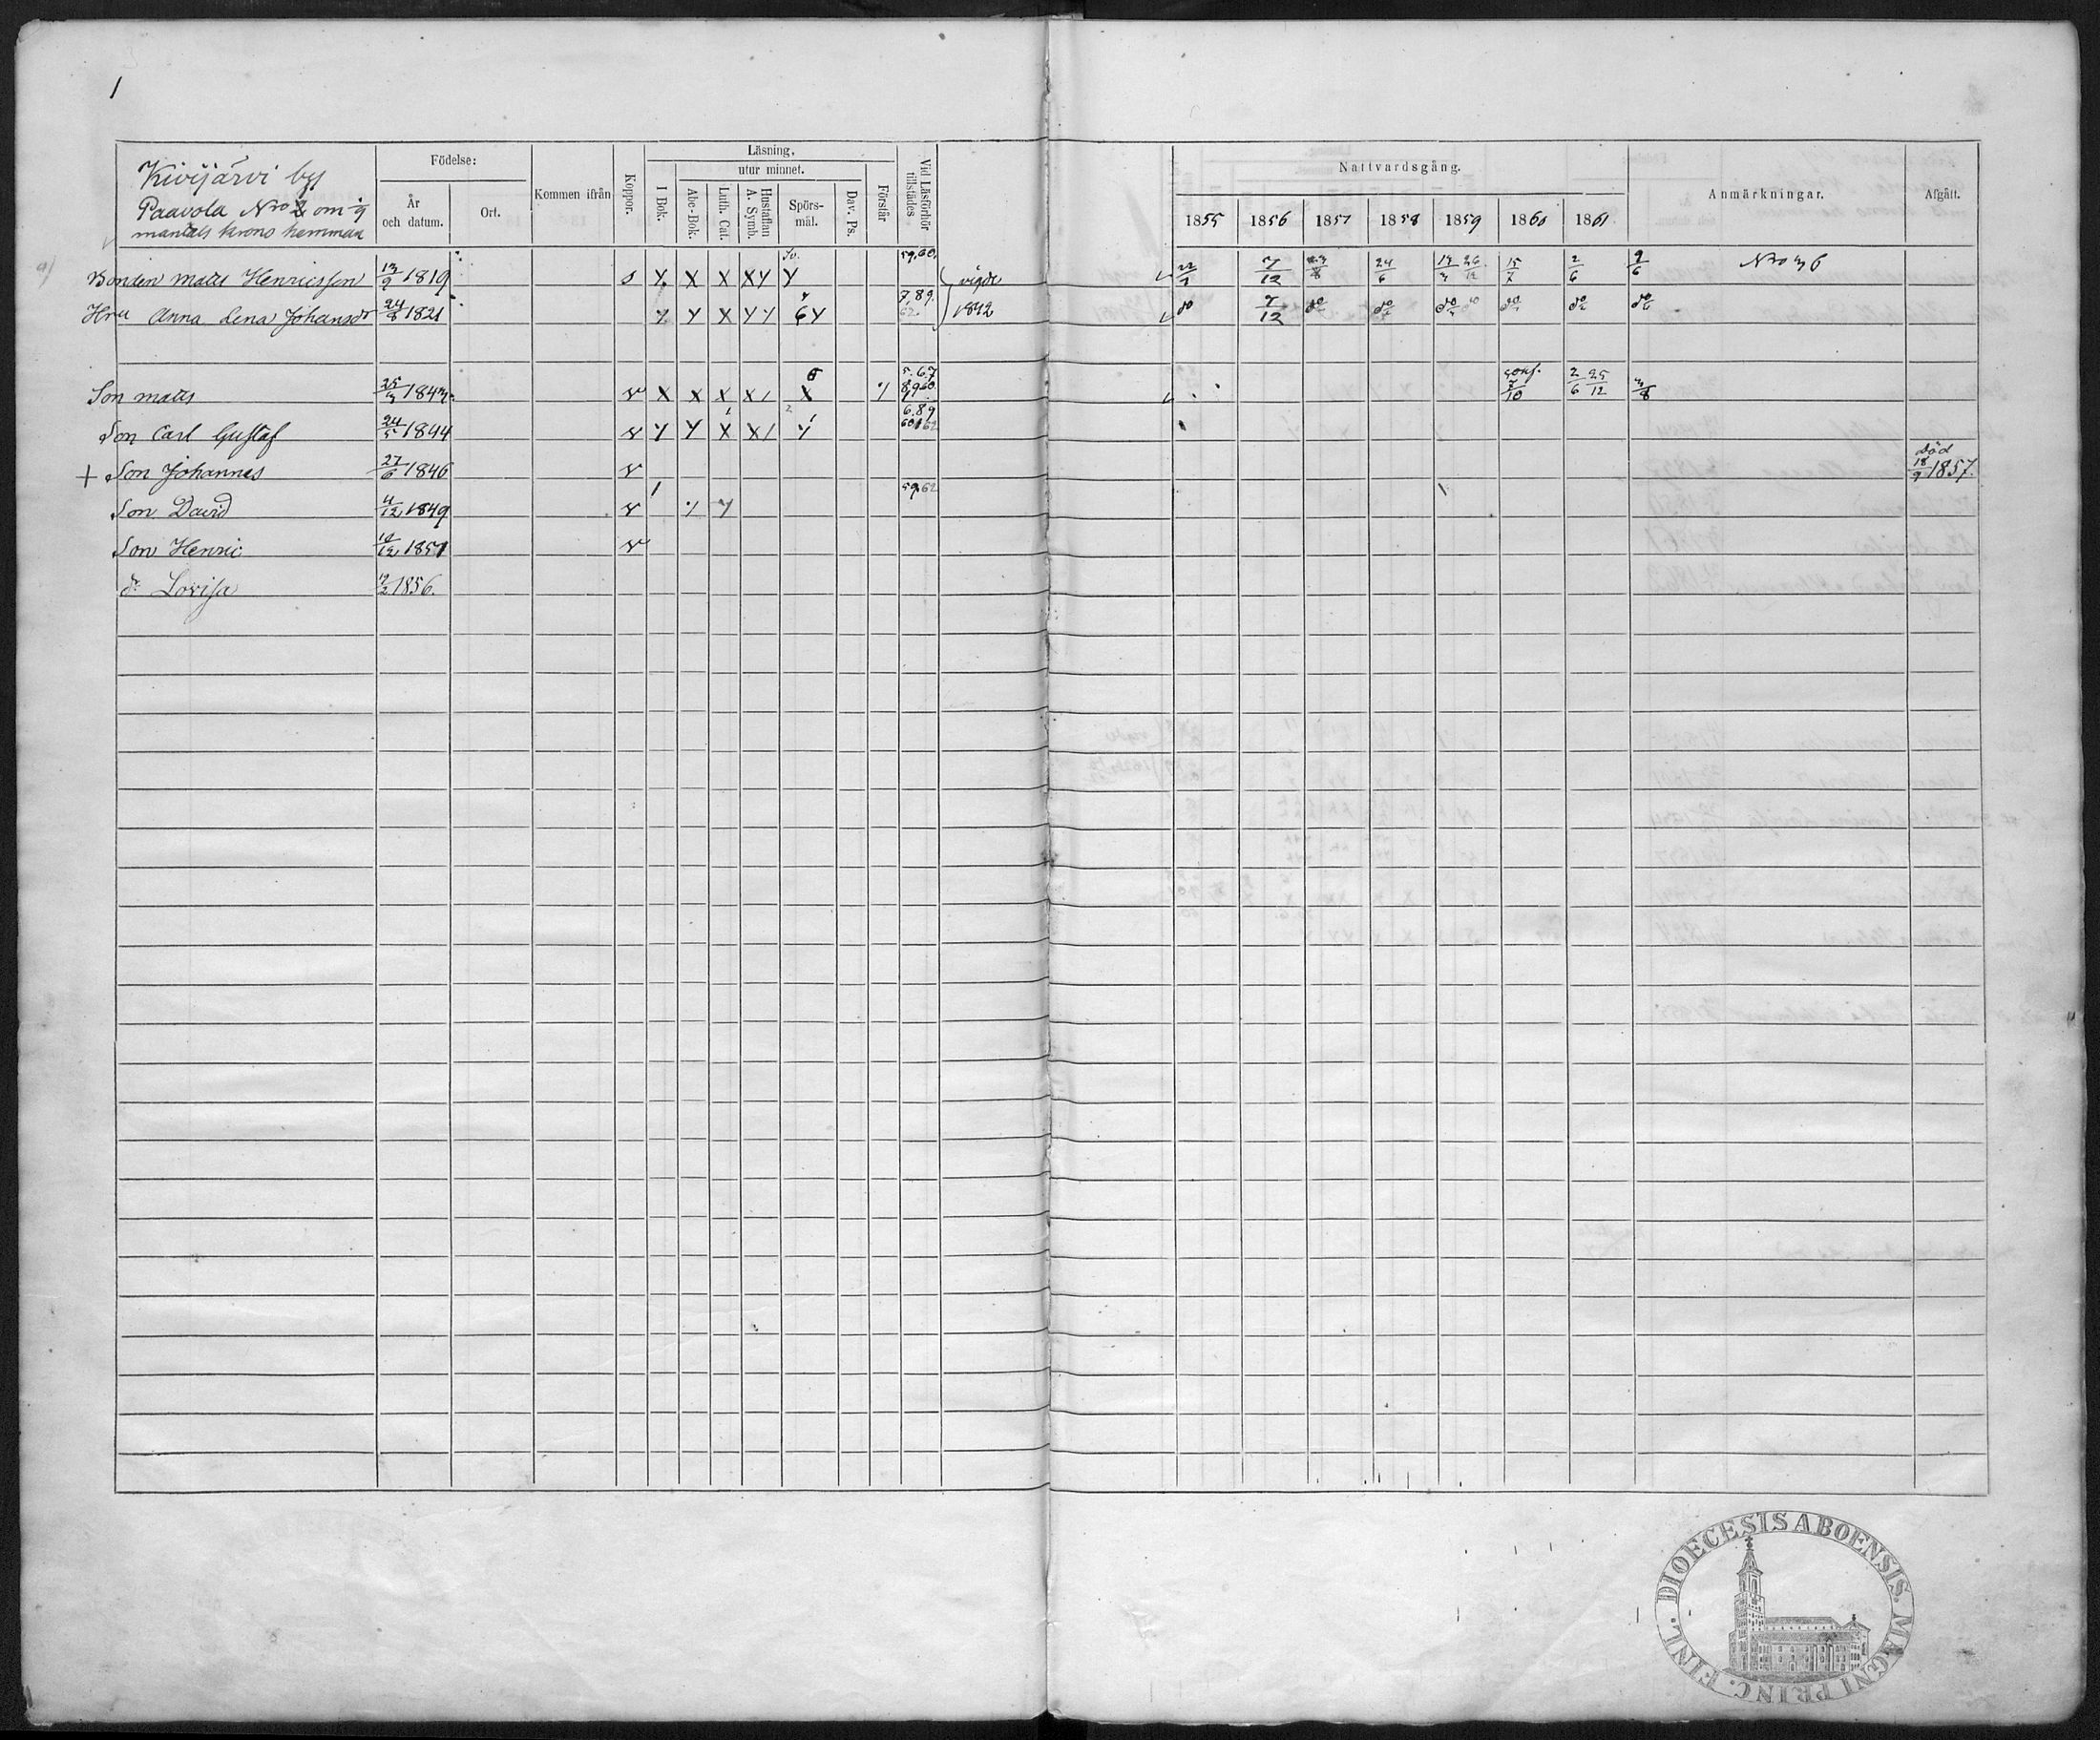 1
Kivijärvi by
Paavola Nro 2 om
mantals krono hemman
Födelse:
År och datum.
Ort.
Kommen ifrån
Koppor.
Läsning,
utur minnet.
I Bok.
Abc-Bok.
Luth. Cat.
Hustaflan A. Symb.
Spörs-mål.
Dav. Ps.
Förstår
Vid Läsförhör tillstädes
Nattvardsgång.
1855 1856 1857 1858 1859 1860 1861
Anmärkningar.
Afgått.
a) Bonden Matts Henricsson 13/9 1819 s Y X X XY Y 59.60. vigde 7/12 23/8 24/6 15/7 2/6 9/6 Nro 36
Hru Anna Lena Johansdr 24/8 1821 Y Y X YY 6Y 7.89. 62. 1842 do 7/12 do do do do do do
Son Matts 25/3 1843. v X X X X/ X 5.67 8960 conf. 7/10 2/6 25/12 3/8
Son Carl Gustaf 24/5 1844 v Y Y X X/ Y 6.89
+ Son Johannes 27/6 1846 v död 18/9 1857.
Son David 4/12 1849 v 59.62
Son Henric 12 1851 v
dr Lovisa 1856.
DIOECESIS ABOENSIS. MAGNI PRINC. FINL.